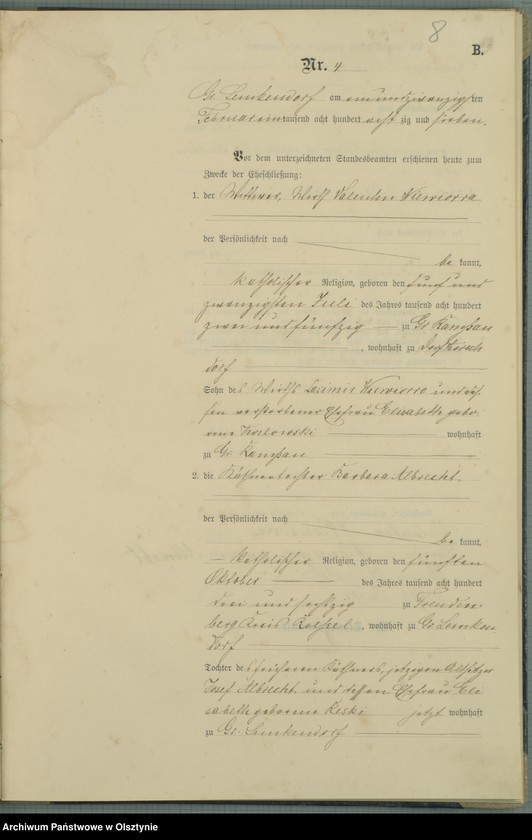 8
B.
Nr. 4
Gr. Lemkendorf am einundzwanzigsten
Februar eintausend acht hundert achtzig und sieben.
Vor dem unterzeichneten Standesbeamten erschienen heute zum
Zwecke der Eheschließung:
1. der Wittwer, Wirth Valentin Wiewiorra
der Persönlichkeit nach
be kannt,
katholischer Religion, geboren den fünf und
zwanzigsten Juli des Jahres tausend acht hundert
zwei und fünfzig zu Gr. Kamsau
, wohnhaft zu
dorf
Sohn des Wirths Casimir Wiewiorra und des
sen verstorbener Ehefrau Elisabeth gebo
rene Koslowski wohnhaft
zu Gr. Kamsau
2. die Käthnertochter Barbara Albrecht.
der Persönlichkeit nach
be kannt,
katholischer Religion, geboren den fünften
Oktober des Jahres tausend acht hundert
drei und sechzig zu Freuden
berg Kreis Rößel, wohnhaft zu Gr. Lemken
dorf
Tochter des früheren Käthners, jetzigen Altsitzers
Josef Albrecht und dessen Ehefrau Eli
sabeth geborene Keski jetzt wohnhaft
zu Gr. Lemkendorf
Archiwum Państwowe w Olsztynie